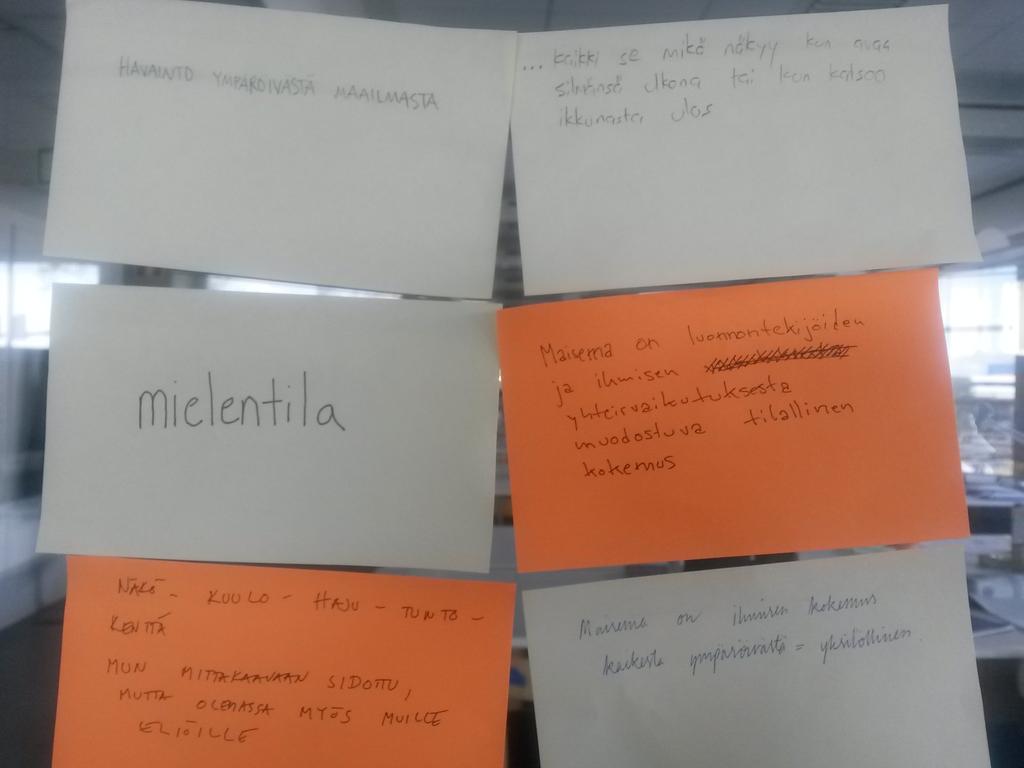 HAVAINTO YMPÄRÖIVÄSTÄ MAAILMASTA
... kaikki se mikä näkyy kun avaa
silmänsä ulkona tai kun katsoo
ikkunasta ulos
mielentila
Maisema on luonnontekijöiden
ja ihmisen
yhteisvaikutuksesta
muodostuva tilallinen
kokemus
NÄKÖ - KUULO - HAJU - TUNTO -
KENTTÄ
MUN MITTAKAAVAAN SIDOTTU,
MUTTA OLEMASSA MYÖS MUILLE
ELIÖILLE
Maisema on ihmisen kokemus
kaikesta ympäröivästä = yksilöllinen.